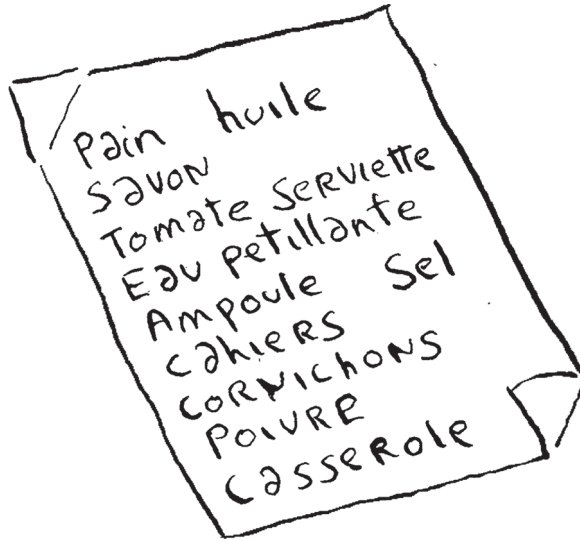 Pain huile
Savon
Tomate Serviette
Eau petillante
Ampoule Sel
Cahiers
Cornichons
Poivre
Casserole